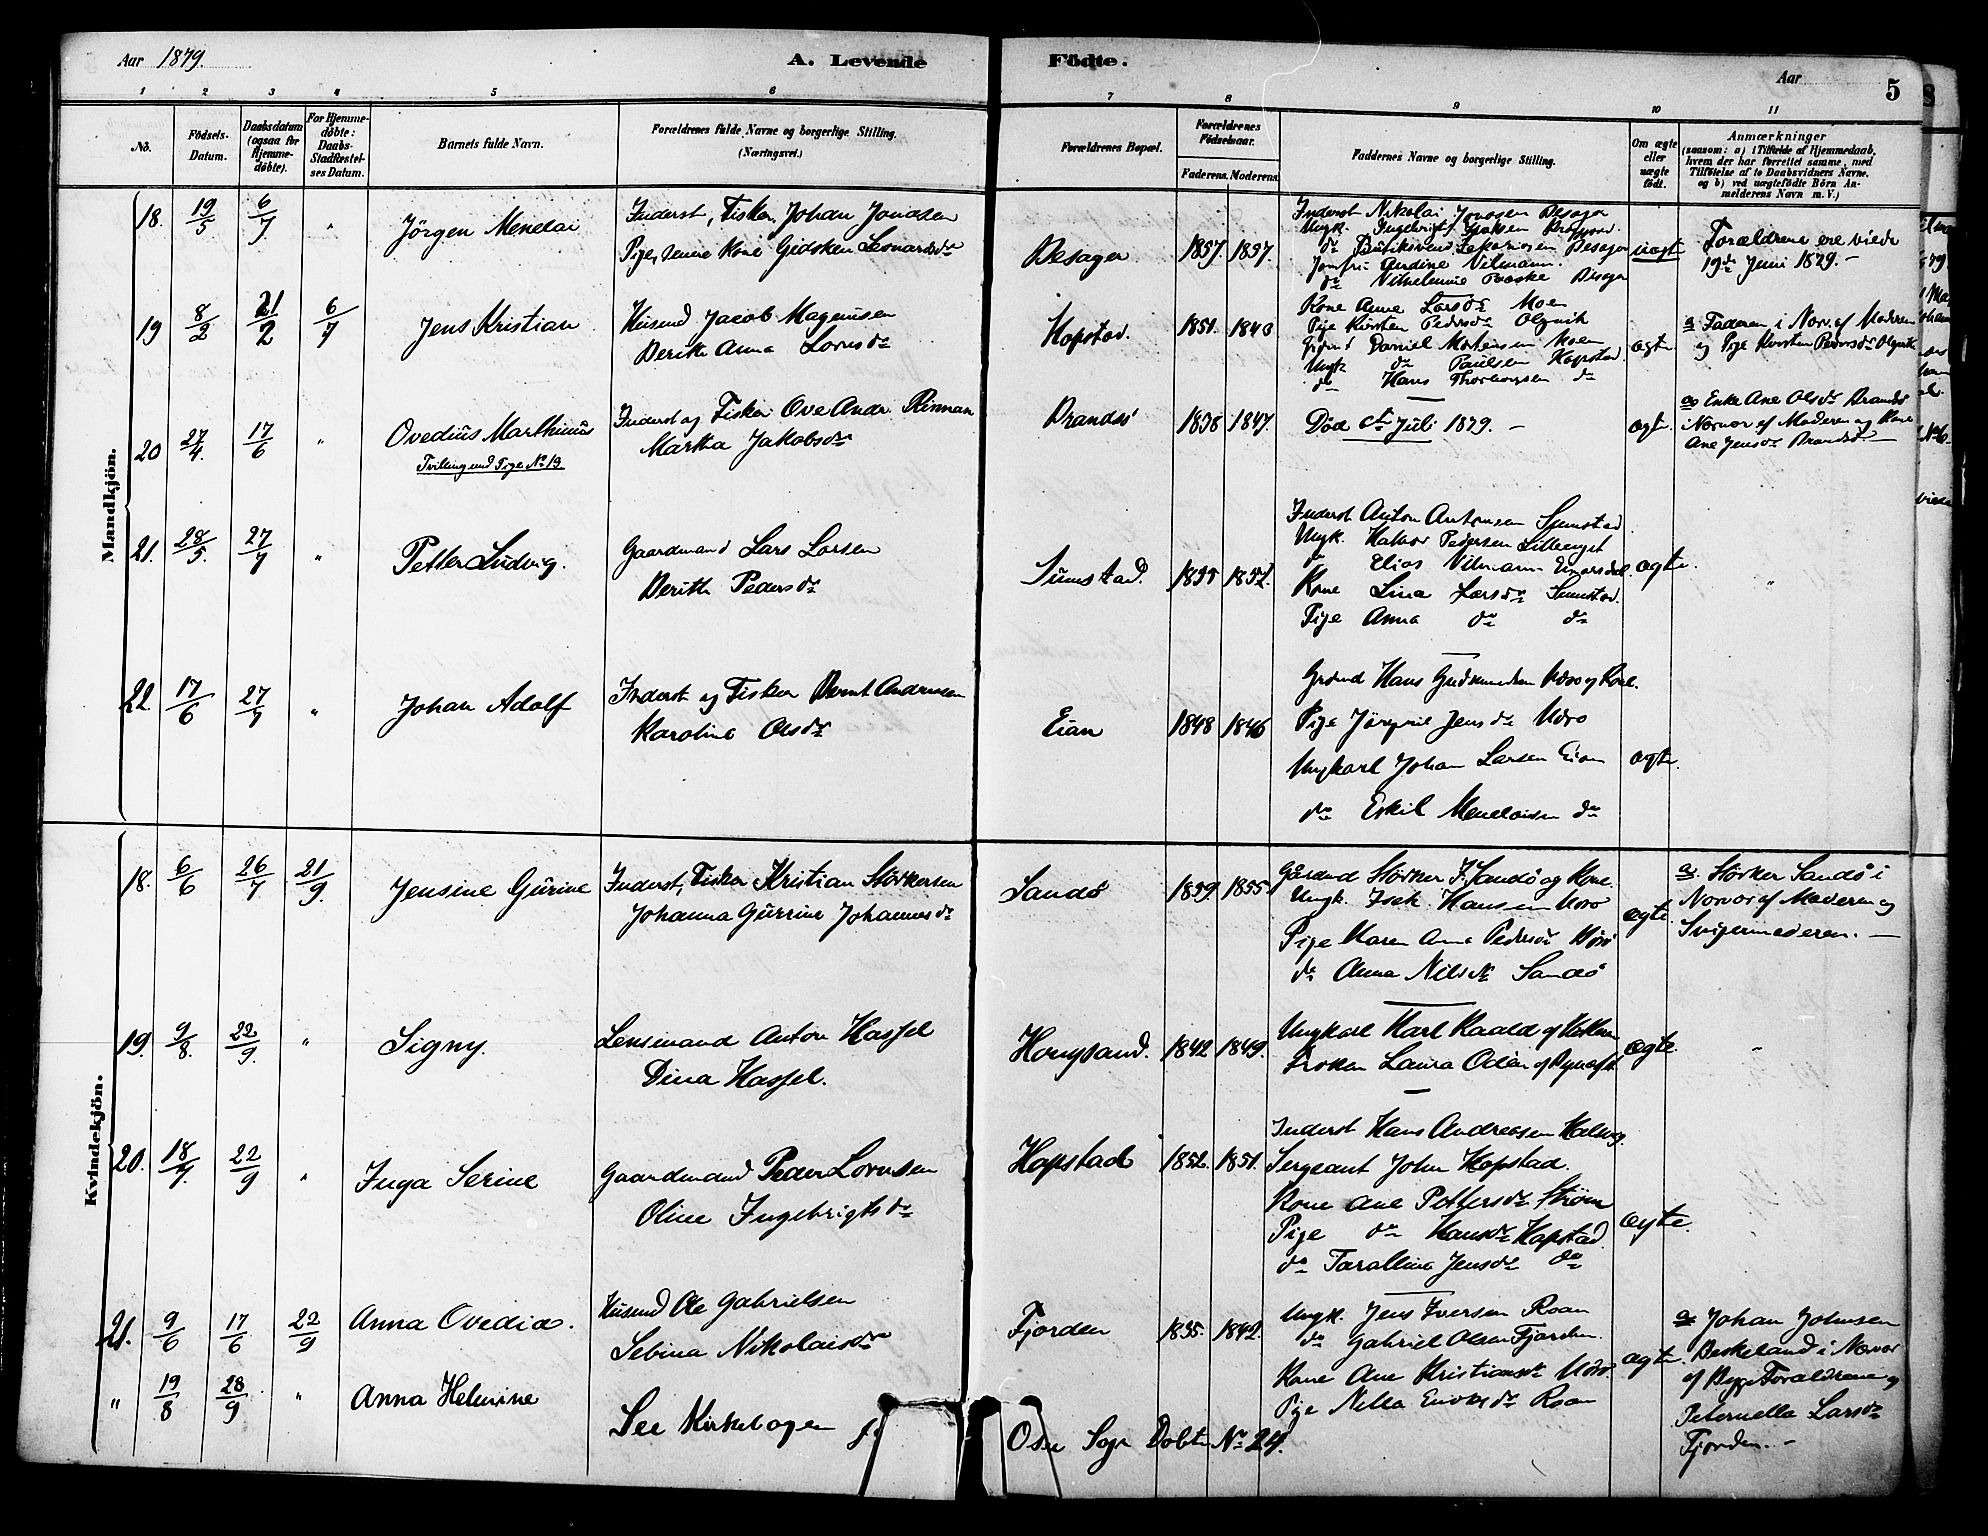 Aar 1879.
A. Levende Födte.
Aar 5
1 2 3 4 5 6 7 8 9 10 11
No.
Födsels-Datum.
Daabsdatum (ogsaa for Hjemme-døbte).
For Hjemme-døbte: Daabs-Stadfæstel-ses Datum.
Barnets fulde Navn.
Forældrenes fulde Navne og borgerlige Stilling. (Næringsvei.)
Forældrenes Bopæl.
Forældrenes Födselsaar.
Faderens. Moderens.
Faddernes Navne og borgerlige Stilling.
Om ægte eller uægte födt.
Anmærkninger
(saasom: a) i Tilfælde af Hjemmedaab,
hvem der har forrettet samme, med
Tilföielse af to Daabsvidners Navne.
og b) ved uægtefödte Börn An-
melderens Navn m. V.)
Mandkjön.
18. 19/5 6/7 " Jörgen Menelai
Inderst, Fisker Johan Jonasen
Pige, senere Kone Gidsken Leonardsdr
Besager 1857. 1857.
Inderst Nikolai Jonasen Besager
Jomfru Andine Vilmann
uægte
Forældrene ere viede
19de Juni 1879. -
19 8/2 21/2 6/7 Jens Kristian
Husmd Jacob Magnusen
Berith Anna Lornsdr
Hopstad. 1851. 1843
Kone Anne Larsdr Moen
Pige Kirsten Pedersdr
Daniel Mortensen Moen
Ungk do Paulsen Hopstad
do Hans do
ægte
a Faderen, i Nærv. af Moderen
og Pige Kirsten Pedersdr
20 27/4. 17/6 " Ovedius Marthinus
Tvilling med Pige No 19
Inderst og Fisker Ove Andr. Rinman
Martha Jakobsdr
Brandsö 1838 1847.
Död Juli 1879. -
ægte.
a Enke Ane Olsdr Brandsö
i Nærvær af Moderen og Kone
Ane Jensdr Brandsö
21. 28/5. 27/7 " Petter Ludvig.
Gaardmand Lars Larsen
Berith Pedersdr
Sumstad. 1855 1852.
Inderst Anton Antonsen Sumstad
Ungk. Halvor Pedersen
do Elias Vilmann
Kone Lina Larsdr Sumstad.
Pige Anna do do
ægte. "
22. 17/6 27/7 " Johan Adolf
Inderst og Fisker Bernt Andersen
Karoline Olsdr
Eian 1848 1846
Hans Gudmundsen og Kone.
Pige Jensdr
Ungkarl Johan Larsen Eian
do Eskil Menelaisen do
ægte.
Kvindekjön.
18. 6/6 26/7 21/9 Jensine Gurine
Inderst, Fisker Kristian Störkersen
Johanna Gurine Johannesdr
Sandö 1859. 1855
Störker J. Sandö og Kone.
Ungk. Isak Hansen
Pige Maren Anna Pedersdr
do Anna Nilsdr Sandö
ægte.
a. Störker Sandö i
Nærvær af Moderen og
Svigermoderen. -
19. 9/8. 22/9. " Signy.
Lensmand Anton Hassel
Dina Hassel.
Hongsand. 1842 1849.
Ungkarl Karl Kaald
Fröken Laura
ægte. "
20. 18/7. 22/9 " Inga Serine
Gaardmand Peder Lornsen
Oline Ingebrigtsdr
Hopstad 1852. 1851.
Inderst Hans Andreasen
Sergeant John Hopstad.
Kone Ane Pettersdr Ström
Pige do Hansdr Hopstad.
do Jensdr do
ægte.
21. 9/6 17/6 22/9 Anna Ovedia.
Husmd Ole Gabrielsen
Sebina Nikolaisdr
Fjorden 1835. 1842.
Ungk. Jens Iversen Roan
do Gabriel Olsen Fjorden.
Kone Ane Kristiansdr
Pige Nella Roan
ægte.
a Johan Johnsen
Beskeland i Nærvær
af Begge Forældrene og
Peternella Larsdr
Fjorden. -
" 19/8 28/9 " Anna Helmine
See Kirkebogen f.
Osen Sogn Döbte No 24.